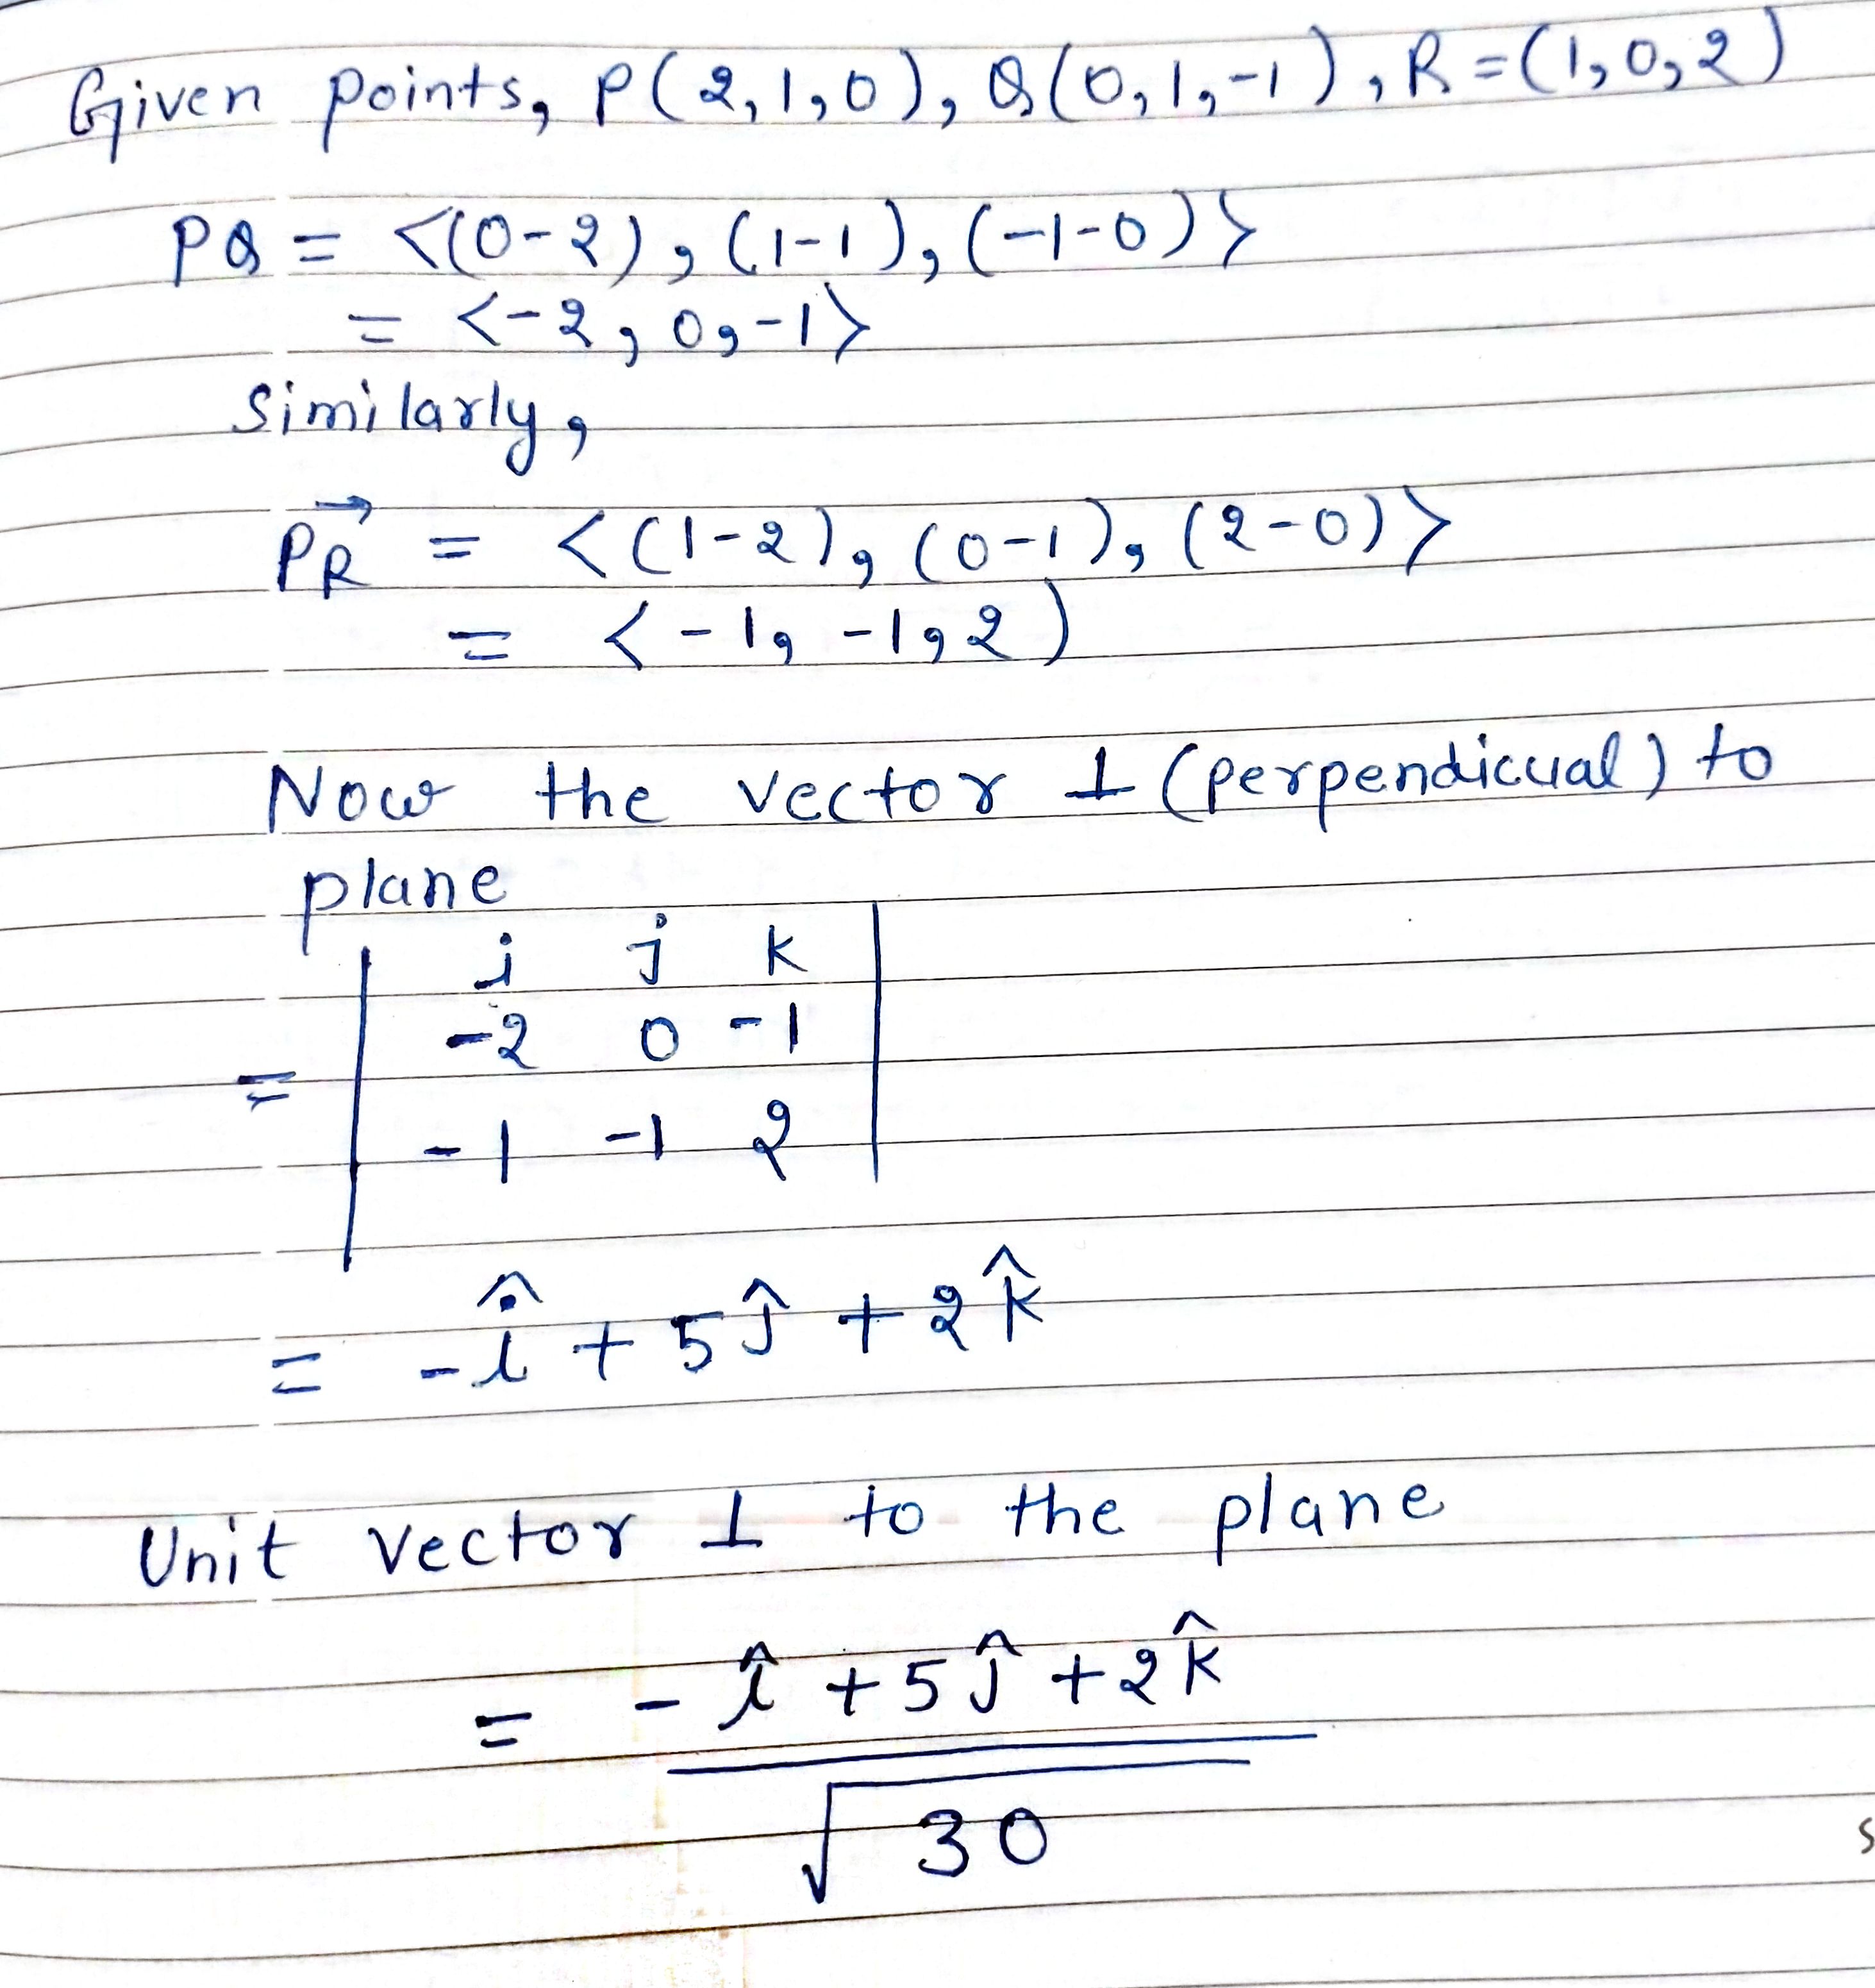 Given points, P(2,1,0), Q(0,1,-1), R=(1,0,2)
PQ = <(0-2), (1-1), (-1-0)>
= <-2, 0, -1>
Similarly,
→
PR = <(1-2), (0-1), (2-0)>
= <-1, -1, 2)
Now the vector ⊥ (perpendicual) to
plane
| i j k |
| -2 0 -1 |
=
| -1 -1 2 |
= -î + 5ĵ + 2k̂
Unit vector ⊥ to the plane
= -î + 5ĵ + 2k̂
√30
s